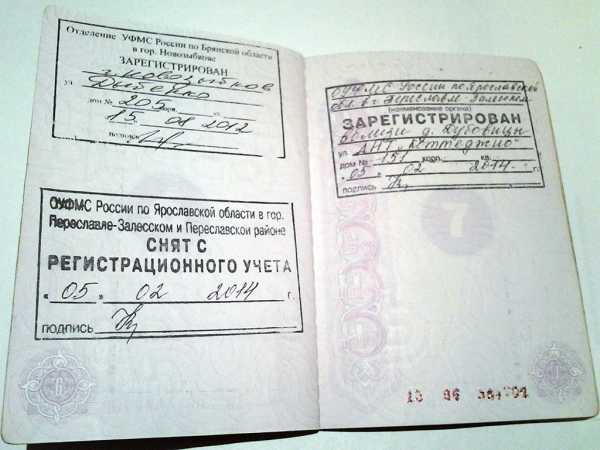 Отделение УФМС России по Брянской области
в гор. Новозыбкове
ЗАРЕГИСТРИРОВАН
г. Новозыбков
ул Дыбенко
дом № 205 корп. кв.
15. 08 2012
подпись
ОУФМС России по Ярославской области в гор.
Переславле-Залесском и Переславской районе
СНЯТ С
РЕГИСТРАЦИОННОГО УЧЕТА
« 05 » 02 2014 г.
ПОДПИСЬ
6
ОУФМС России по Ярославской
обл. в г. Переславле-Залесском
(наименование органа)
ЗАРЕГИСТРИРОВАН
вблизи д. Дубовицы
ул АНТ "Коттеджио"
дом № 151 корп. кв.
« 05 » 02 2014 г.
ПОДПИСЬ
7